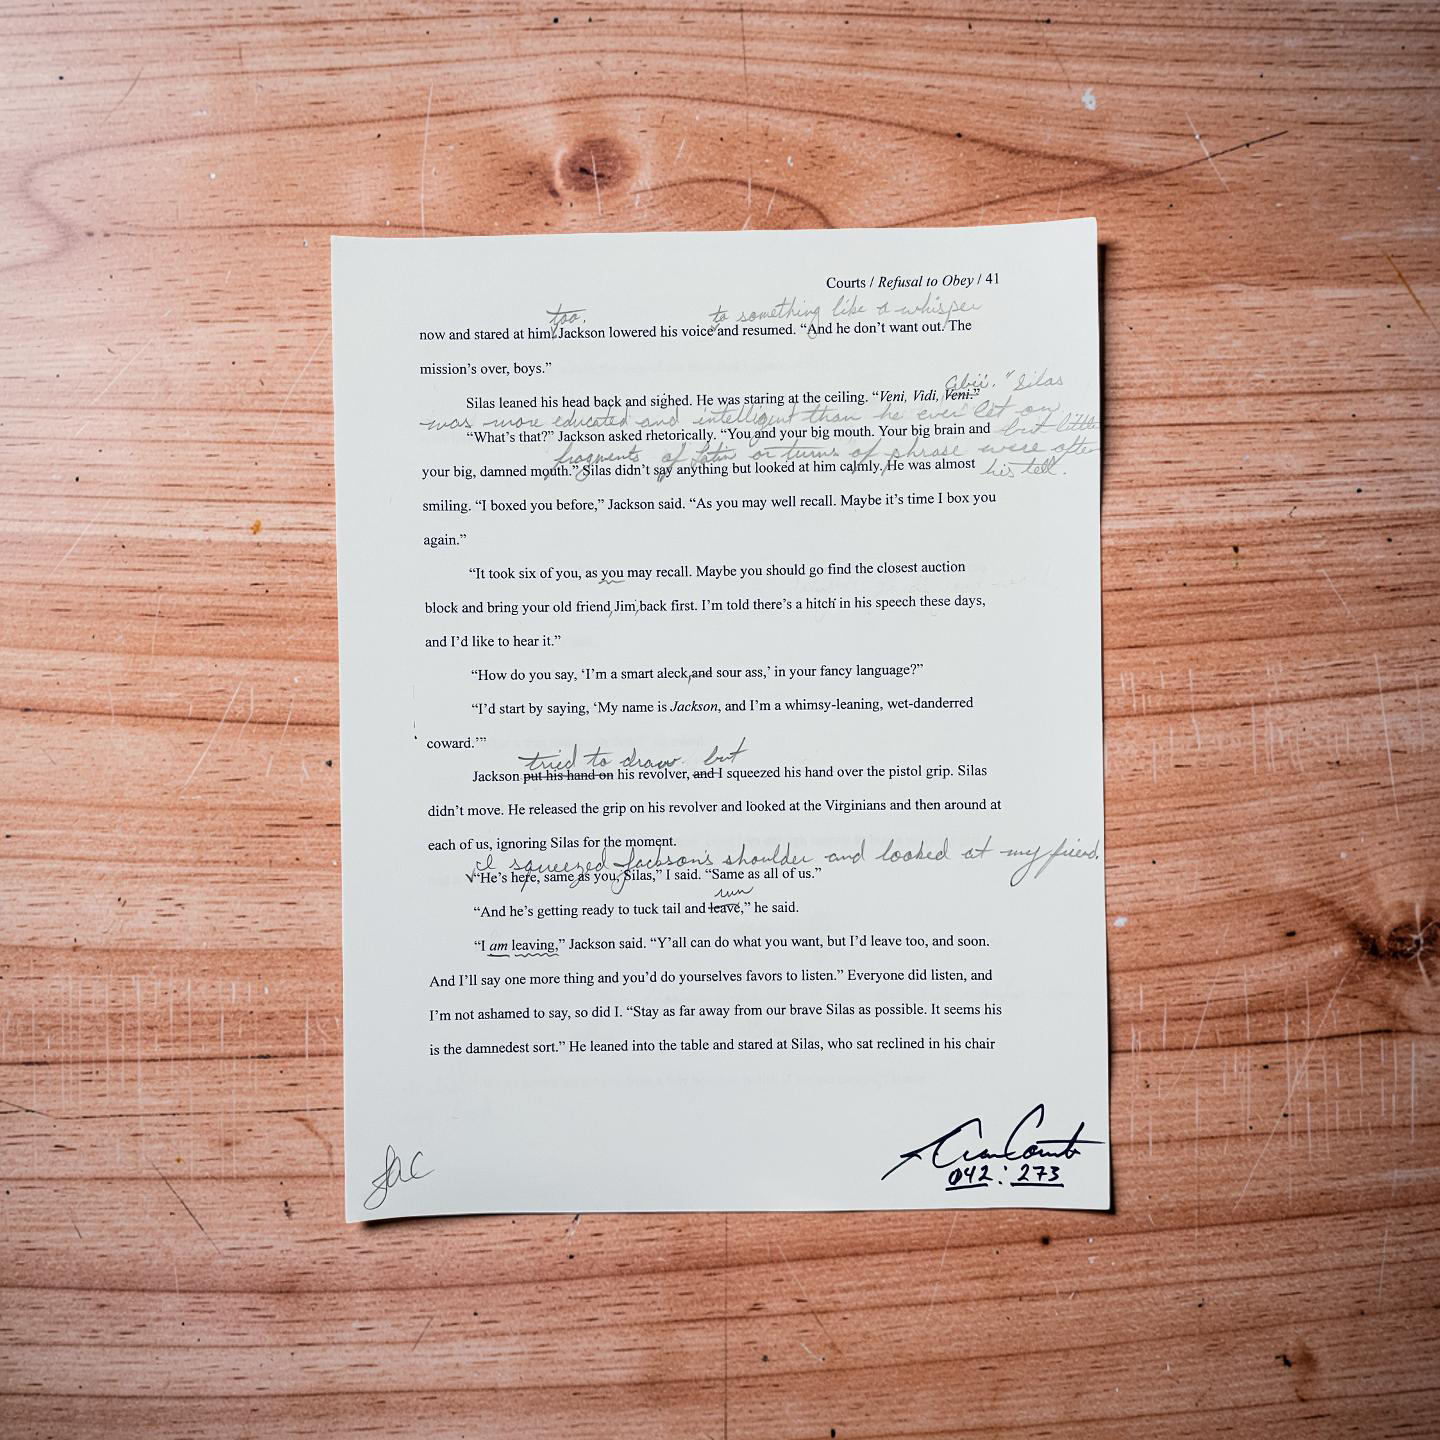 Courts / Refusal to Obey / 41
too. to something like a whisper
now and stared at him. Jackson lowered his voice and resumed. “And he don’t want out. The
mission’s over, boys.”
abii.” Silas
Silas leaned his head back and sighed. He was staring at the ceiling. “Veni, Vidi, Veni.”
was more educated and intelligent than he ever let on
“What’s that?” Jackson asked rhetorically. “You and your big mouth. Your big brain and
but little
fragments of Latin or turns of phrase were often
your big, damned mouth.” Silas didn’t say anything but looked at him calmly. He was almost
his tell.
smiling. “I boxed you before,” Jackson said. “As you may well recall. Maybe it’s time I box you
again.”
“It took six of you, as you may recall. Maybe you should go find the closest auction
block and bring your old friend, Jim, back first. I’m told there’s a hitch in his speech these days,
and I’d like to hear it.”
“How do you say, ‘I’m a smart aleck, and sour ass,’ in your fancy language?”
“I’d start by saying, ‘My name is Jackson, and I’m a whimsy-leaning, wet-danderred
coward.’”
tried to draw but
Jackson put his hand on his revolver, and I squeezed his hand over the pistol grip. Silas
didn’t move. He released the grip on his revolver and looked at the Virginians and then around at
each of us, ignoring Silas for the moment.
I squeezed Jackson's shoulder and looked at my friend.
“He’s here, same as you, Silas,” I said. “Same as all of us.”
run
“And he’s getting ready to tuck tail and leave,” he said.
“I am leaving,” Jackson said. “Y’all can do what you want, but I’d leave too, and soon.
And I’ll say one more thing and you’d do yourselves favors to listen.” Everyone did listen, and
I’m not ashamed to say, so did I. “Stay as far away from our brave Silas as possible. It seems his
is the damnedest sort.” He leaned into the table and stared at Silas, who sat reclined in his chair
042 : 273